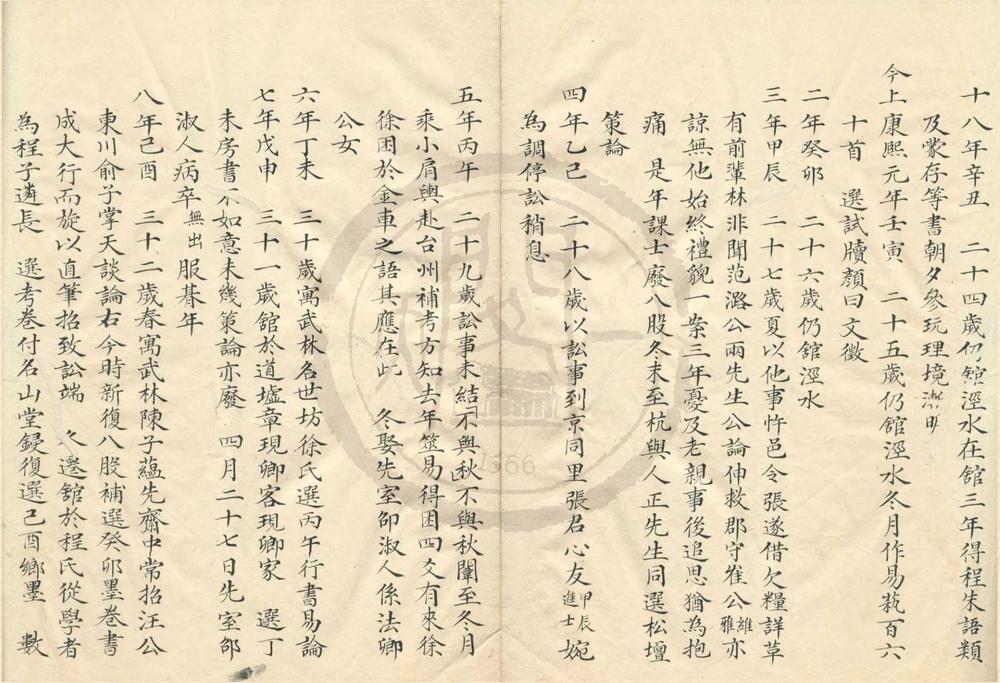 十八年辛丑　二十四歲仍館涇水在館三年得程朱語類
及蒙存等書朝夕參玩理境漸明
今上康熙元年壬寅　二十五歲仍館涇水冬月作易藝百六
十首　選試牘顏曰文徵
二年癸卯　二十六歲仍館涇水
三年甲辰　二十七歲夏以他事忤邑令張遂借欠糧詳革
有前輩林非聞范潞公兩先生公論伸救郡守崔公維雅亦
諒無他始終禮貌一案三年憂及老親事後追思猶為抱
痛　是年課士廢八股冬末至杭與人正先生同選松壇
策論
四年乙巳　二十八歲以訟事到京同里張君心友甲辰進士婉
為調停訟稍息
五年丙午　二十九歲訟事未結示與秋不與秋闈至冬月
乘小肩輿赴台州補考方知去年筮易得困四爻有來徐
徐困於金車之語其應在此　冬娶先室邵淑人係法卿
公女
六年丁未　三十歲寓武林名世坊徐氏選丙午行書易論
七年戊申　三十一歲館於道墟章現卿客現卿家　選丁
未房書不如意未幾策論亦廢　四月二十七日先室邵
淑人病卒無出服朞年
八年己酉　三十二歲春寓武林陳子蘊先齋中常招汪公
東川俞子掌天談論古今時新復八股補選癸卯墨卷書
成大行而旋以直筆招致訟端　久遷館於程氏從學者
為程子遴長　選考卷付名山堂錄復選己酉鄉墨　數